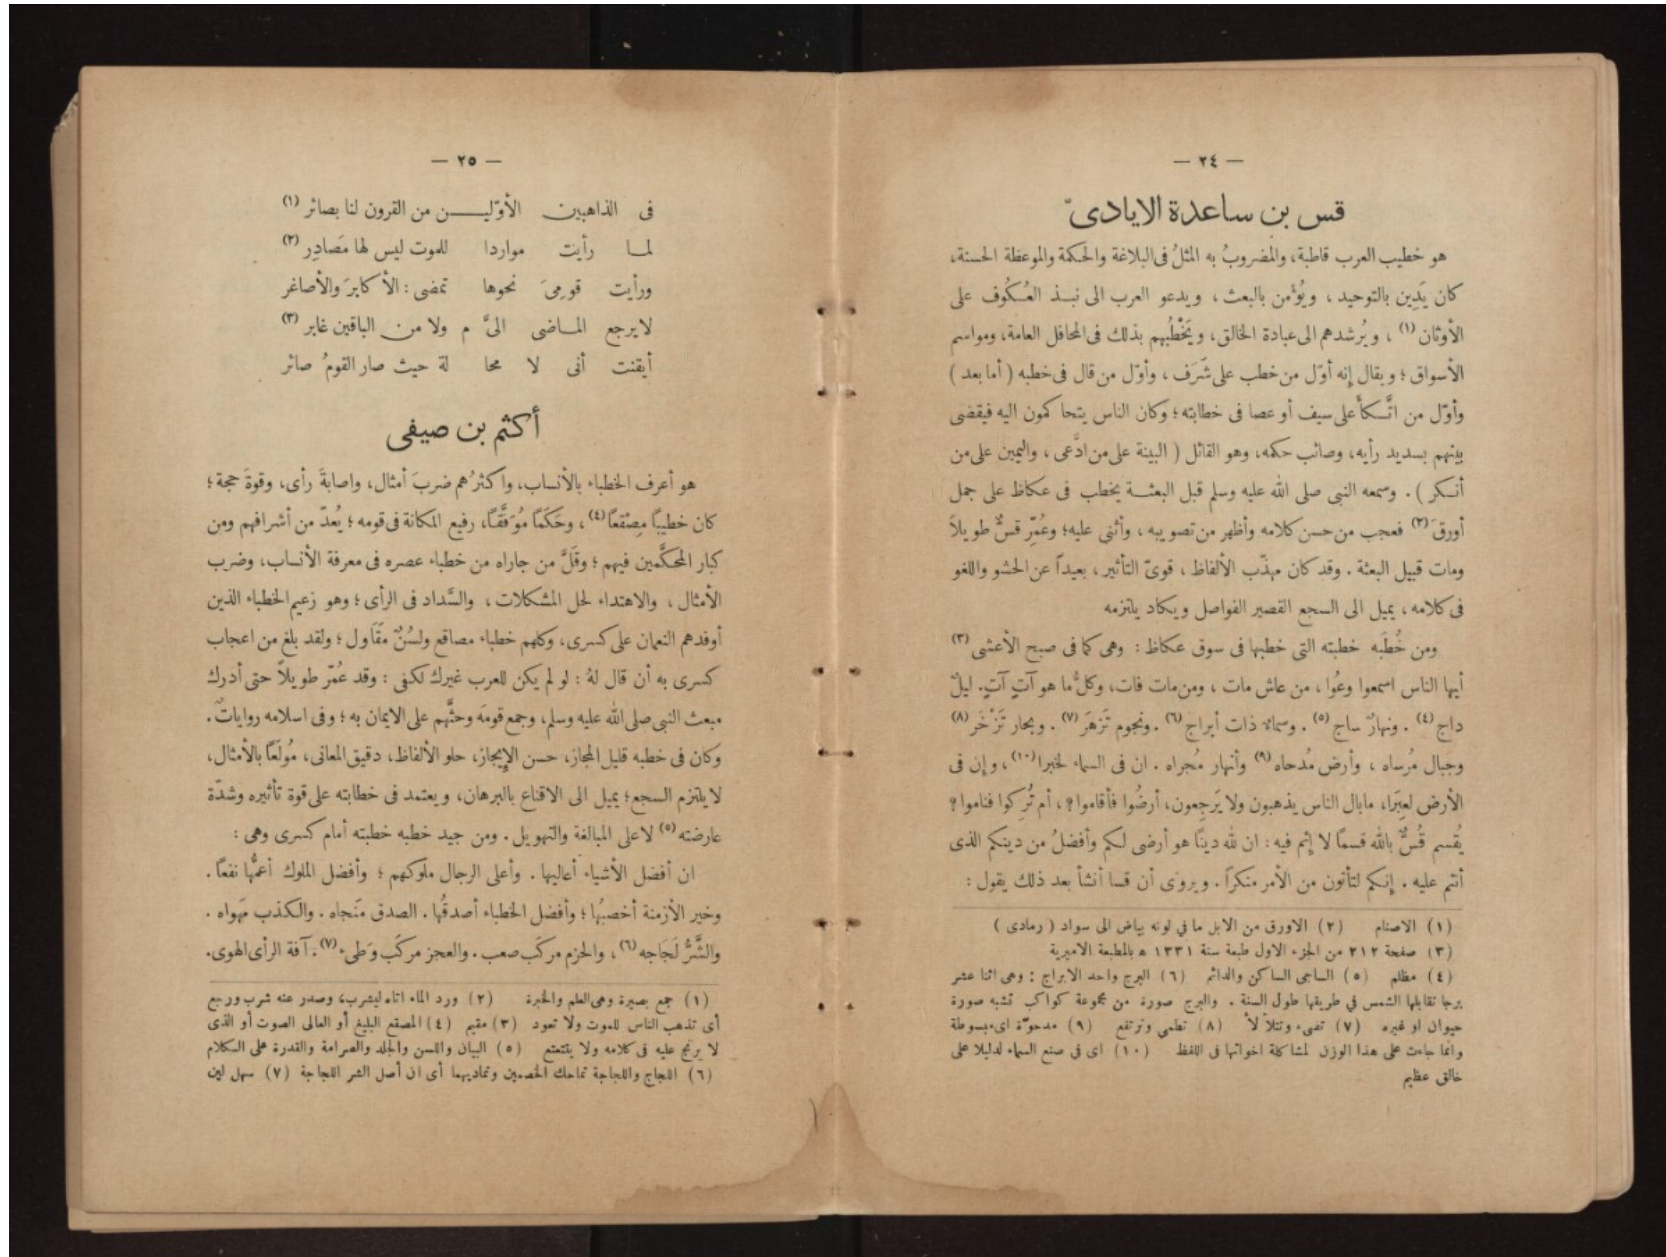 — ٢٤ —
قس بن ساعدة الايادىّ
هو خطيب العرب قاطبة، والمضروبُ به المثلُ فى البلاغة والحكمة والموعظة الحسنة،
كان يَدِين بالتوحيد ، ويُؤْمن بالبعث ، ويدعو العرب الى نبذ العُكُوف على
الأوثان (١) ، ويُرشدهم الى عبادة الخالق، ويَخْطُبهم بذلك فى المحافل العامة، ومواسم
الأسواق ؛ ويقال إنه أوّل من خطب على شَرَف ، وأوّل من قال فى خطبه ( أما بعد )
وأوّل من اتَّكأ على سيف أو عصا فى خطابته ؛ وكان الناس يتحاكمون اليه فيقضى
بينهم بسديد رأيه، وصائب حكمه، وهو القائل ( البينة على من ادَّعى ، واليمين على من
أنكر ) . وسمعه النبى صلى الله عليه وسلم قبل البعثة يخطب فى عكاظ على جمل
أورقَ (٢) فعجب من حسن كلامه وأظهر من تصويبه ، وأثنى عليه؛ وعُمِّر قسٌّ طويلاً
ومات قبيل البعثة . وقد كان مهذّب الألفاظ ، قوىّ التأثير ، بعيداً عن الحشو واللغو
فى كلامه ، يميل الى السجع القصير الفواصل ويكاد يلتزمه
ومن خُطَبه خطبته التى خطبها فى سوق عكاظ : وهى كما فى صبح الأعشى (٣)
أيها الناس اسمعوا وعُوا ، من عاش مات ، ومن مات فات، وكلُّ ما هو آتٍ آتٍ. ليلٌ
داج (٤) . ونهارٌ ساج (٥) . وسماءٌ ذات أبراج (٦) . ونجوم تَزهَر (٧) . وبحار تَزْخَر (٨)
وجبال مُرساه ، وأرض مُدحاه (٩) وأنهار مُجراه . ان فى السماء لخبرا (١٠) ، وإن فى
الأرض لعِبَرا، مابال الناس يذهبون ولا يَرجِعون، أرضُوا فأقاموا؟ ، أم تُرِكوا فناموا؟
يُقسم قُسٌّ بالله قسمًا لا إثم فيه : ان لله دينًا هو أرضى لكم وأفضلُ من دينكم الذى
أنتم عليه . إنكم لتأتون من الأمر منكرًا . ويروى أن قسا أنشأ بعد ذلك يقول :
(١) الاصنام (٢) الاورق من الابل ما في لونه بياض الى سواد ( رمادى )
(٣) صفحة ٢١٢ من الجزء الاول طبعة سنة ١٣٣١ ﻫ بالمطبعة الاميرية
(٤) مظلم (٥) الساجى الساكن والدائم (٦) البرج واحد الابراج : وهى اثنا عشر
برجا تقابلها الشمس في طريقها طول السنة . والبرج صورة من مجموعة كواكب تشبه صورة
حيوان او غيره (٧) تضىء وتتلألأ (٨) تطمى وترتفع (٩) مدحوّة اى مبسوطة
وانما جاءت على هذا الوزن لمشاكلة اخواتها فى اللفظ (١٠) اى فى صنع السماء لدليلا على
خالق عظيم
— ٢٥ —
فى الذاهبين الأوّليـــن من القرون لنا بصائر (١)
لمـا رأيت مواردا للموت ليس لها مَصادِر (٢)
ورأيت قومِىَ نحوها تمضى : الأكابرَ والأصاغر
لا يرجع المـاضى الىَّ م ولا من الباقين غابر (٣)
أيقنت أنى لا محا لة حيث صار القومُ صائر
أكثم بن صيفى
هو أعرف الخطباء بالأنساب، واكثرُهم ضربَ أمثال، واصابةَ رأى، وقوةَ حجة ؛
كان خطيبًا مِصْقعًا (٤) ، وحَكَمًا مُوَفَّقًا، رفيع المكانة فى قومه ؛ يُعدّ من أشرافهم ومن
كبار المحكَّمين فيهم ؛ وقَلَّ من جاراه من خطباء عصره فى معرفة الأنساب، وضرب
الأمثال ، والاهتداء لحل المشكلات ، والسَّداد فى الرأى ؛ وهو زعيم الخطباء الذين
أوفدهم النعمان على كسرى، وكلهم خطباء مصاقع ولُسُنٌ مَقَاول ؛ ولقد بلغ من اعجاب
كسرى به أن قال لهُ : لو لم يكن للعرب غيرك لكفى : وقد عُمّر طويلاً حتى أدرك
مبعث النبى صلى الله عليه وسلم، وجمع قومَه وحثَّهم على الايمان به ؛ وفى اسلامه رواياتٌ.
وكان فى خطبه قليل المجاز، حسن الإيجاز، حلو الألفاظ، دقيق المعانى، مُولَعًا بالأمثال،
لا يلتزم السجع ؛ يميل الى الاقناع بالبرهان، ويعتمد فى خطابته على قوة تأثيره وشدّة
عارضته (٥) لا على المبالغة والتهويل . ومن جيد خطبه خطبته أمام كسرى وهى :
ان أفضل الأشياء أعاليها . وأعلى الرجال ملوكهم ؛ وأفضل الملوك أعمُّها نفعًا .
وخير الأزمنة أخصبُها ؛ وأفضل الخطباء أصدقُها . الصدق مَنجاه . والكذب مَهواه .
والشَّرُّ لَجَاجه (٦) ، والحزم مركَب صعب . والعجز مركَب وَطىء (٧) . آفة الرأى الهوى.
(١) جمع بصيرة وهى العلم والخبرة (٢) ورد الماء اتاه ليشرب، وصدر عنه شرب ورجع
أى تذهب الناس للموت ولا تعود (٣) مقيم (٤) المصقع البليغ أو العالى الصوت أو الذى
لا يرتج عليه فى كلامه ولا يتتعتع (٥) البيان واللسن والجلد والصرامة والقدرة على الكلام
(٦) اللجاج واللجاجة تماحك الخصمين وتماديهما أى ان أصل الشر اللجاجة (٧) سهل لين